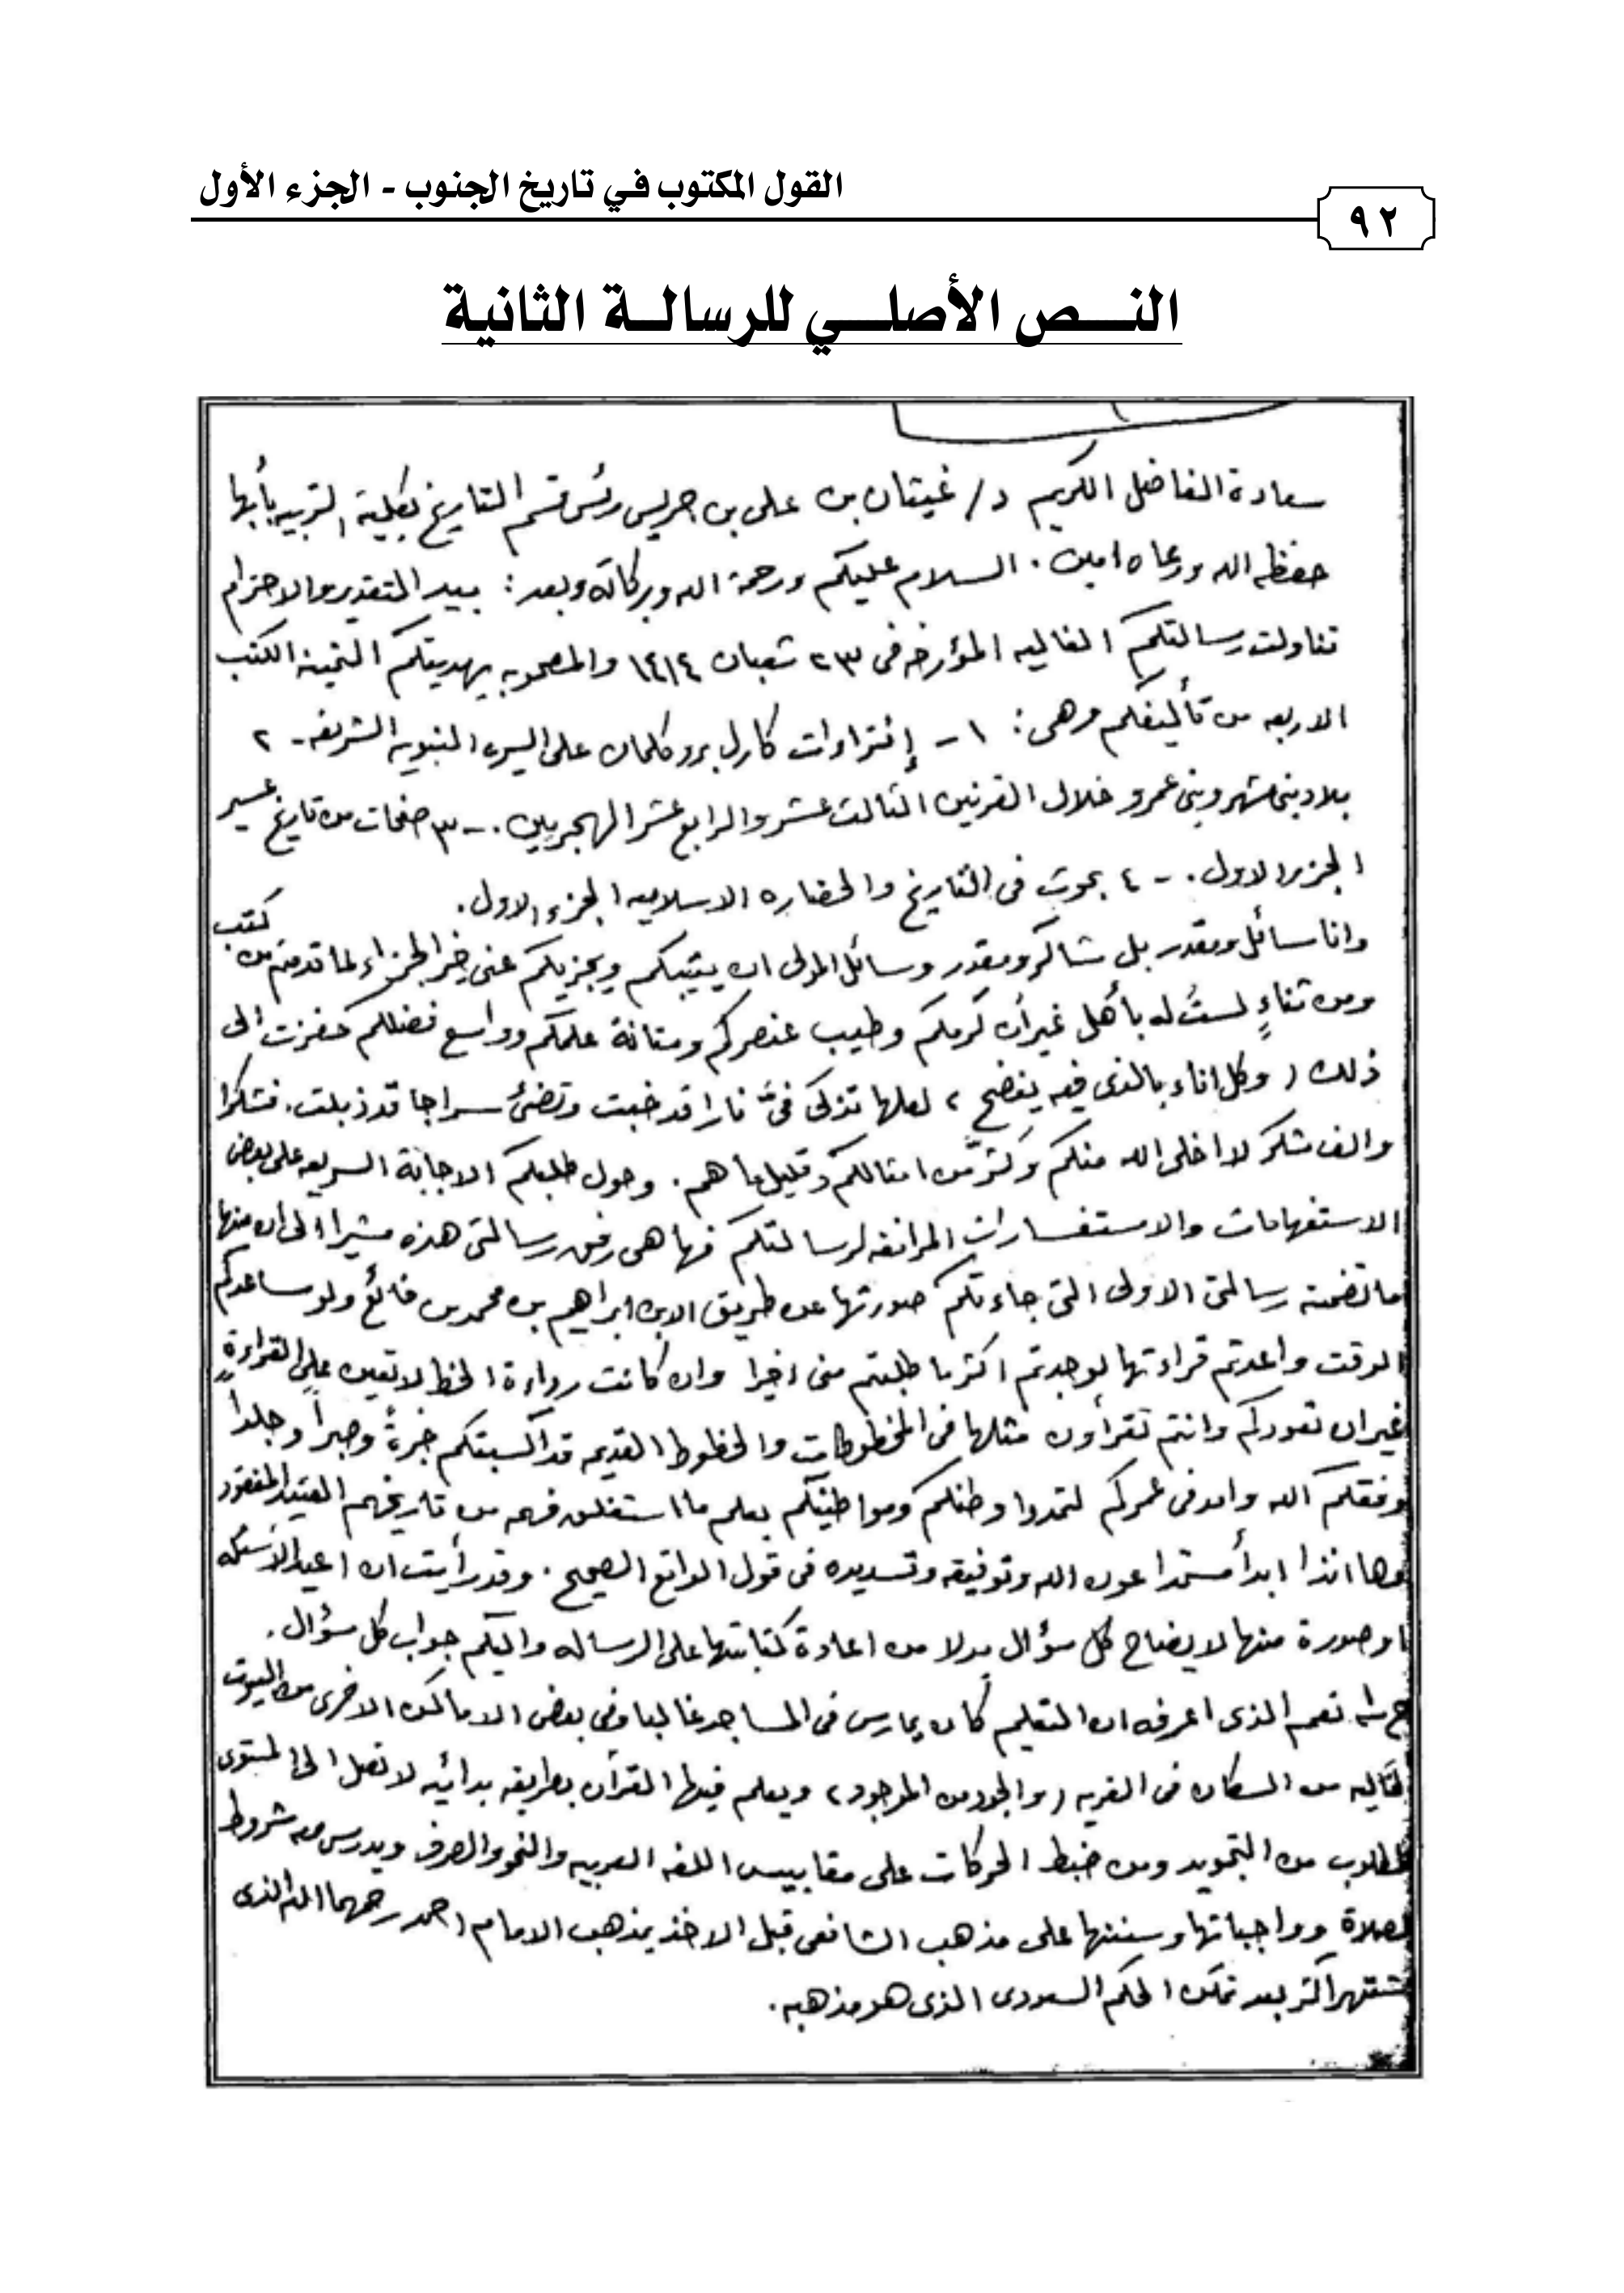 القول المكتوب في تاريخ الجنوب - الجزء الأول
٩٢
النـــص الأصلـــي للرسالـة الثانية
سعادة الفاضل الكريم د/ غيثان بن علي بن جريس رئيس قسم التاريخ بكلية التربيه بأبها
حفظه الله ورعاه امين. السلام عليكم ورحمة الله وبركاته وبعد: بيد التقدير والاحترام
تناولت رسالتكم الغاليه المؤرخه فى ٢٣ شعبان ١٤١٤ والمصحوبه بهديتكم الثمينه الكتب
الاربعه من تأليفكم وهى: ١- إفتراءات كارل بروكلمان على السيره النبويه الشريفه - ٢
بلاد بنى شهر وبنى عمرو خلال القرنين الثالث عشر والرابع عشر الهجريين. - ٣ صفحات من تاريخ عسير
الجزء الاول. - ٤ بحوث فى التاريخ والحضاره الاسلاميه الجزء الاول.
وانا سائل ومقدر بل شاكر ومقدر وسائل المولى ان يثيبكم ويجزيكم عنى خير الجزاء لما قدمتم من كتب
ومن ثناءٍ لستُ له بأهل غير أن كرمكم وطيب عنصركم ومتانة علمكم وواسع فضلكم حفزت الى
ذلك (وكل اناء بالذى فيه ينضح) لعلها تذكى فىَّ نارا قد خبت وتضئ سراجا قد ذبلت. فشكرا
والف شكر لا اخلى الله منكم وكثَّر من امثالكم وقليل ما هم. وحول طلبكم الاجابة السريعه على بعض
الاستفهامات والاستفسارات المرافقه لرسالتكم فها هى رفق رسالتى هذه مشيرا الى ان منها
ما تضمنته رسالتى الاولى التى جاءتكم صورتها عن طريق الابن ابراهيم بن محمد بن فائع ولو ساعدكم
الوقت واعدتم قراءتها لوجدتم اكثر ما طلبتم منى اخيرا وان كانت رداءة الخط لا تعين على القراءةِ
غير ان تعودكم وانتم تقرأون مثلها فى المخطوطات والخطوط القديمه قد اكسبتكم خبرةً وصبراً وجلدا
وفقكم الله وامد فى عمركم لتمدوا وطنكم ومواطنيكم بعلم ما استغلق فهمه من تاريخهم العتيد المفقود
وها انذا ابدأ مستمدا عون الله وتوفيقه وتسديده فى قول الواقع الصحيح. وقد رأيت ان اعيد الأسئله
او صورة منها لايضاح كل سؤال بدلا من اعادة كتابتها على الرساله واليكم جواب كل سؤال.
نعم الذى اعرفه ان التعليم كان يمارس فى المساجد غالبا وفى بعض الاماكن الاخرى من البيوت
الخاليه من السكان فى القريه (والجود من الموجود) ويعلم فيها القرآن بطريقه بدائيه لا تصل الى المستوى
المطلوب من التجويد ومن ضبط الحركات على مقاييس اللغه العربيه والنحو والصرف ويدرس معه شروط
الصلاة وواجباتها وسننها على مذهب الشافعى قبل الاخذ بمذهب الامام احمد رحمهما الله الذى
اشتهر اكثر بعد تمكن الحكم السعودى الذى هو مذهبه.